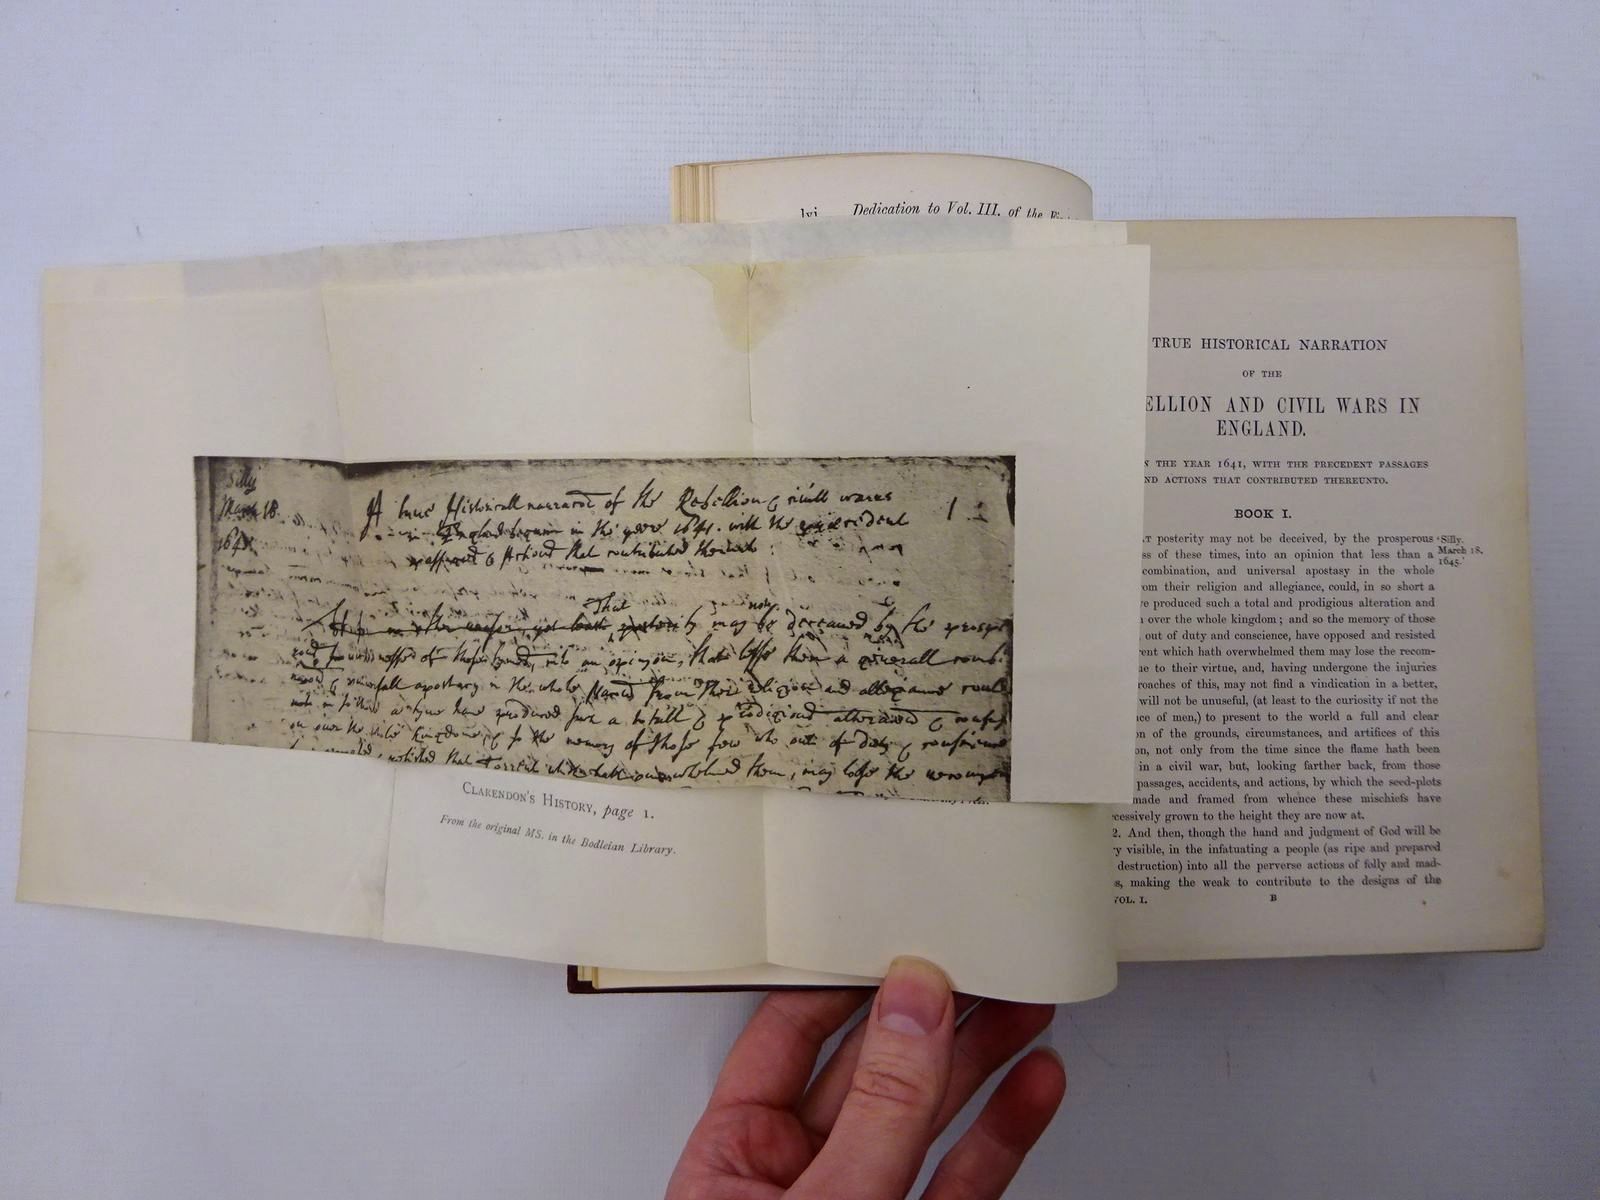 lvi Dedication to Vol. III. of the
Silly
March 18.
1645.
A true Historicall narration of the Rebellion & civill warrs 1
in England begunn in the yeere 1641. with the precedent
passages & Actions that contributed therunto
That
posterity may not be deceaved by the prosper
of those tymes, into an opinion, that lesse then a generall comb
universall apostacy in the whole Nation from their religion and allegiance could
in so short a tyme have produced such a totall & prodigious alteration & confus
over the whole kingdome, & so the memory of those few who out of duty & conscience
that Torrent which hath overwhelmed them, may lose the recompen
Clarendon's History, page 1.
From the original MS. in the Bodleian Library.
TRUE HISTORICAL NARRATION
OF THE
ELLION AND CIVIL WARS IN
ENGLAND.
N THE YEAR 1641, WITH THE PRECEDENT PASSAGES
ND ACTIONS THAT CONTRIBUTED THEREUNTO.
BOOK I.
AT posterity may not be deceived, by the prosperous
'Silly.
March 18.
1645.'
ss of these times, into an opinion that less than a
combination, and universal apostasy in the whole
om their religion and allegiance, could, in so short a
ve produced such a total and prodigious alteration and
n over the whole kingdom; and so the memory of those
out of duty and conscience, have opposed and resisted
rent which hath overwhelmed them may lose the recom-
ue to their virtue, and, having undergone the injuries
roaches of this, may not find a vindication in a better,
will not be unuseful, (at least to the curiosity if not the
nce of men,) to present to the world a full and clear
on of the grounds, circumstances, and artifices of this
on, not only from the time since the flame hath been
in a civil war, but, looking farther back, from those
passages, accidents, and actions, by which the seed-plots
made and framed from whence these mischiefs have
ccessively grown to the height they are now at.
2. And then, though the hand and judgment of God will be
ry visible, in the infatuating a people (as ripe and prepared
destruction) into all the perverse actions of folly and mad-
s, making the weak to contribute to the designs of the
VOL. I. B